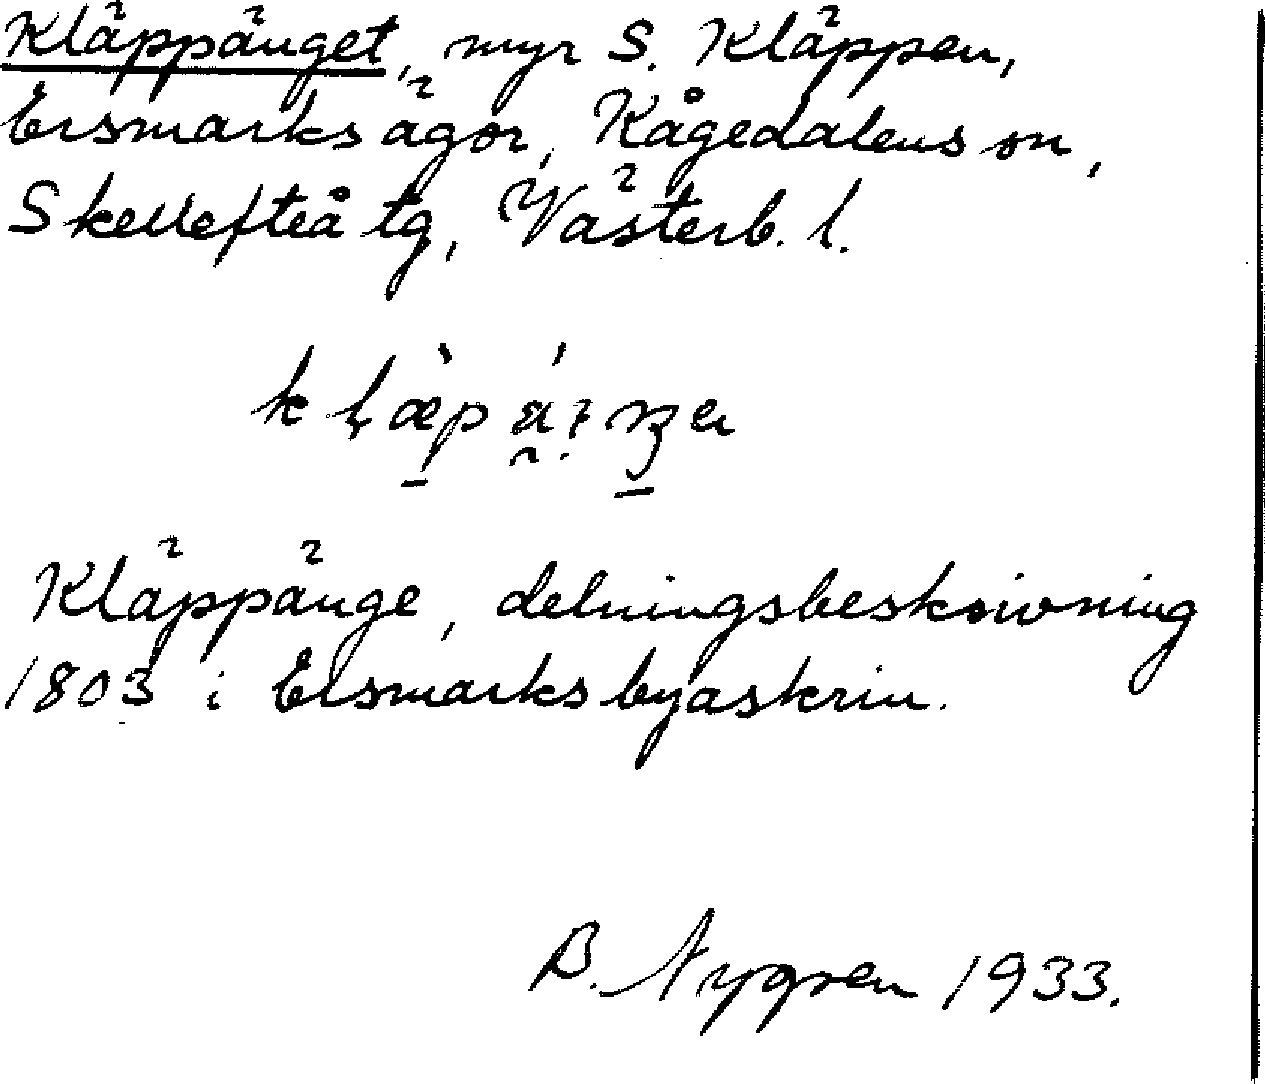 Kläppänget, myr S. Kläppen,
Ersmarks ägor, Kågedalens sn,
Skellefteå tg, Västerb. l.
Kläppänge, delningsbeskrivning
1803 i Ersmarks byaskrin.
B. Nygren 1933.